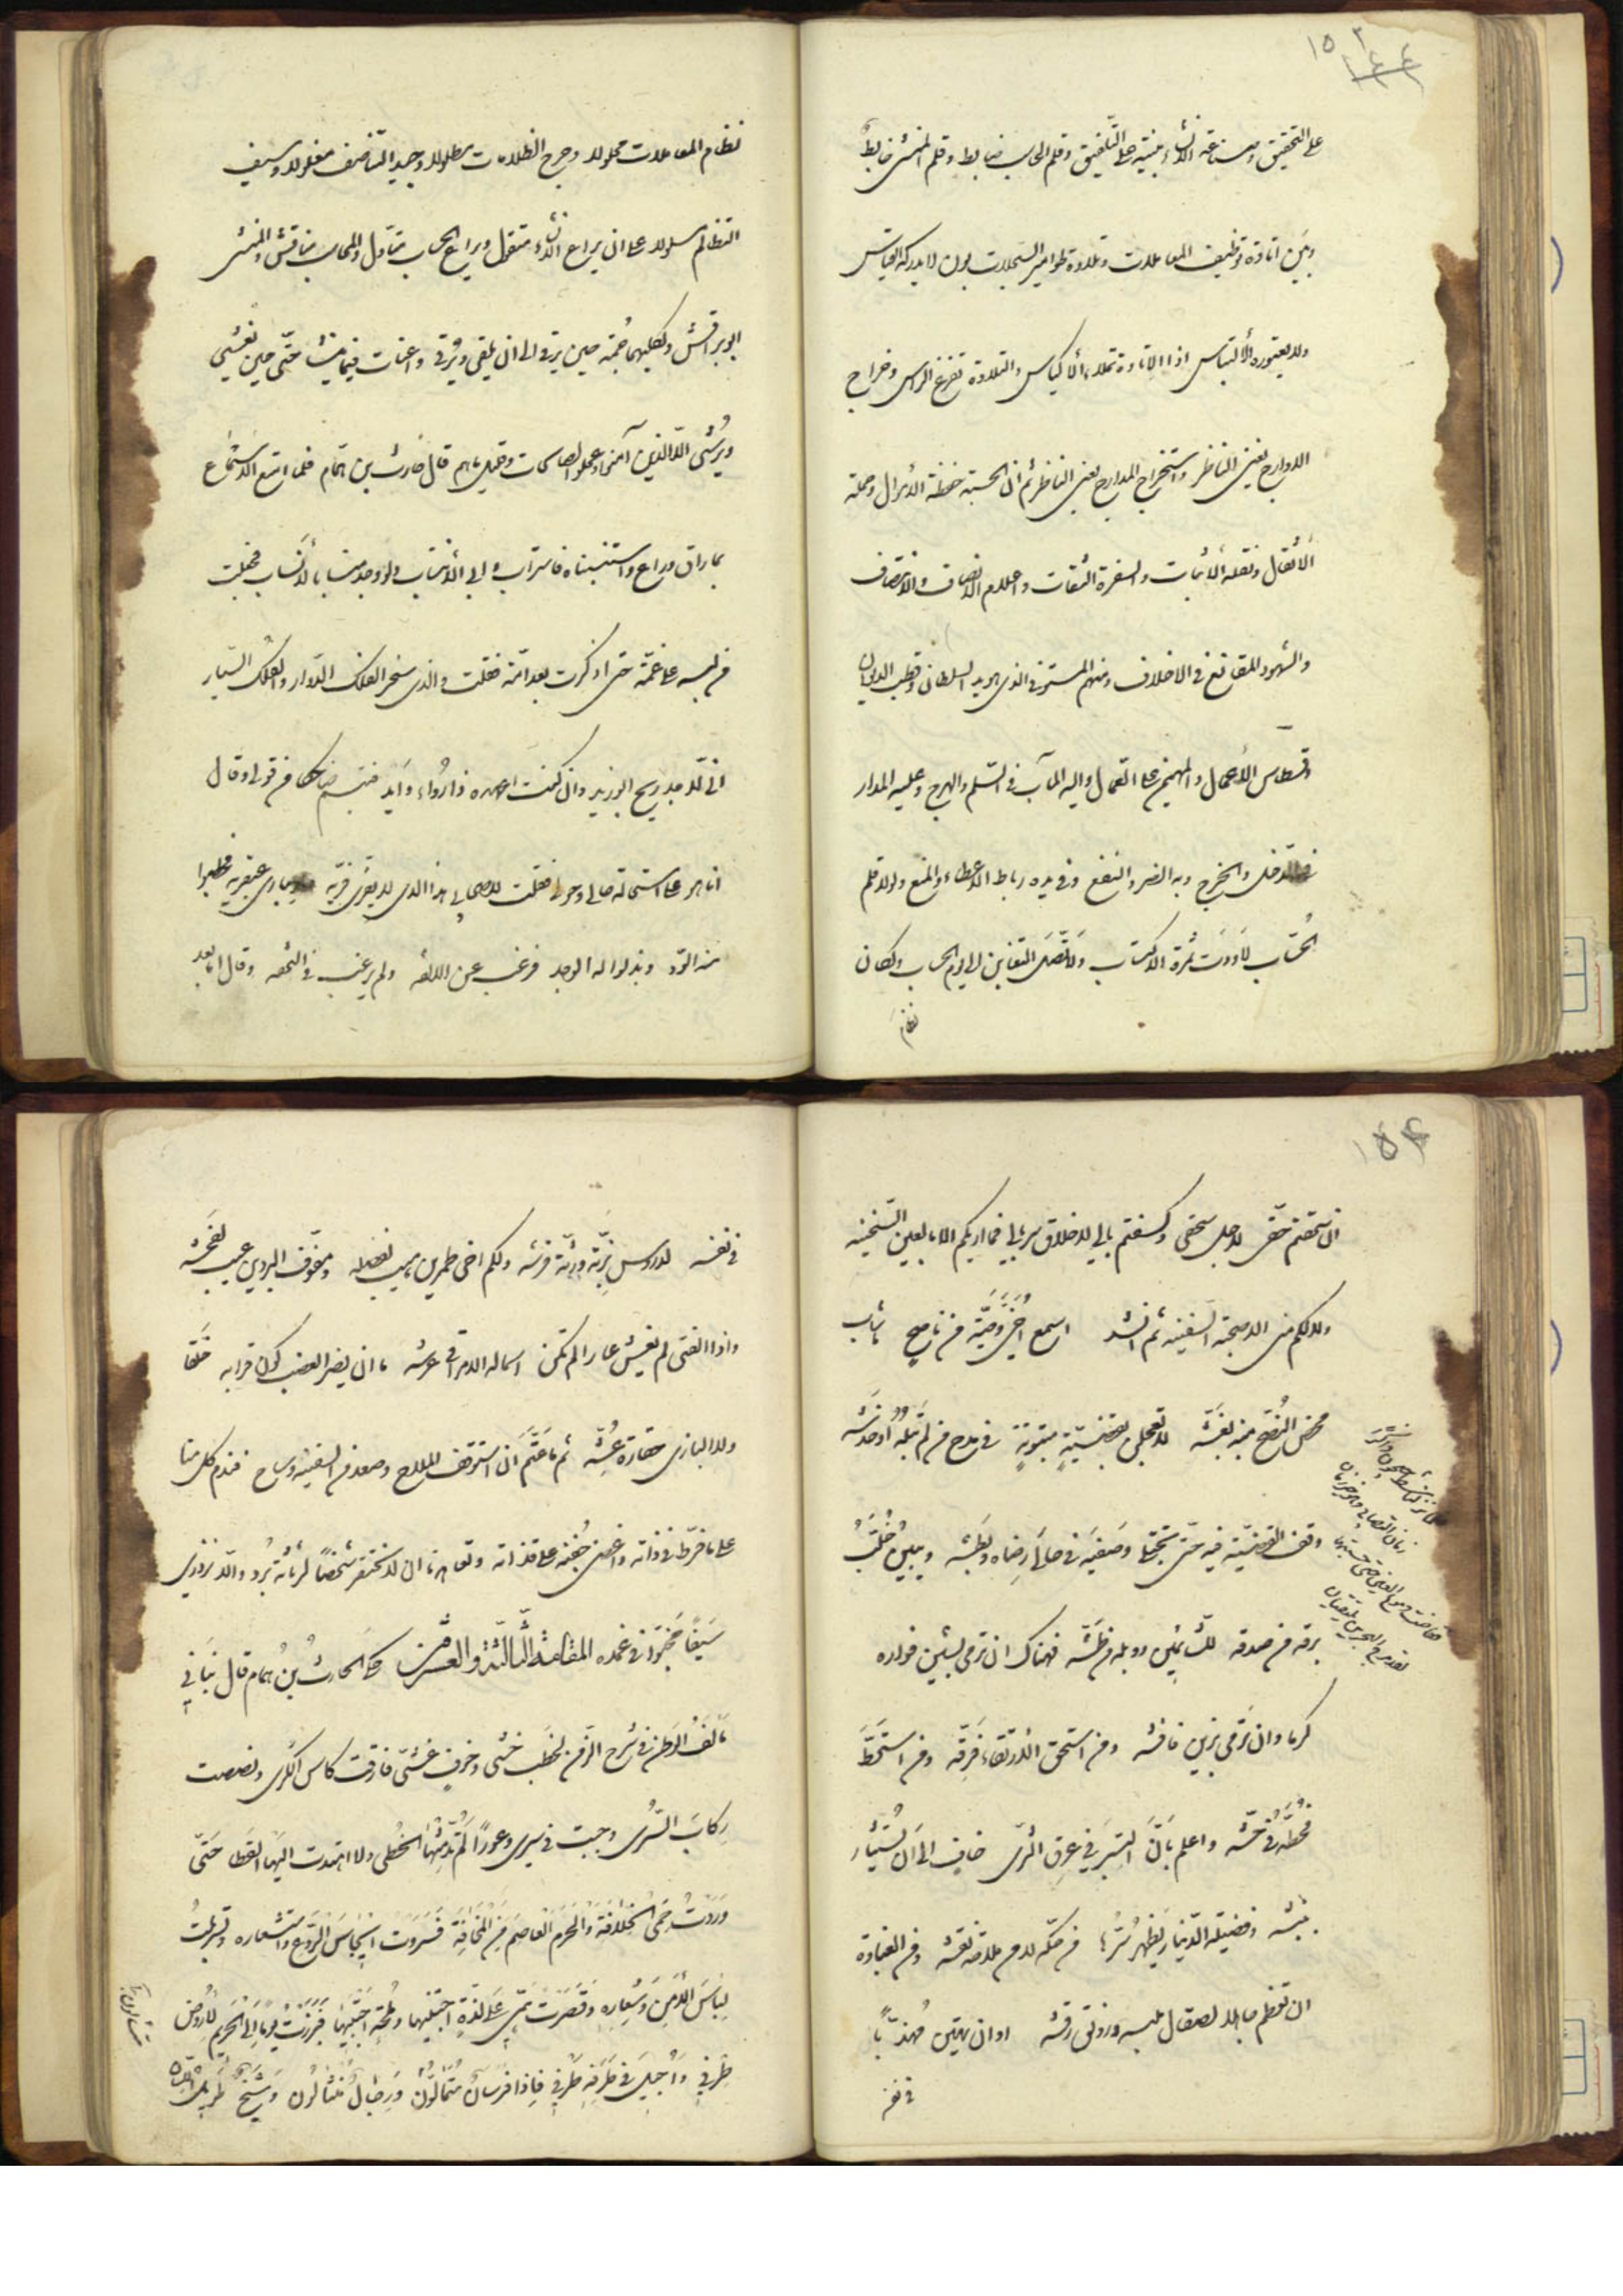 ١٥٣
على التحقيق وصناعة الانشاء مبنية على التلفيق وقلم الحاسب ضابط وقلم المنشئ خابط
وبين اتاوة توظيف المعاملات وتلاوة طوامير السجلات بون لا يدركه القياس
ولا يعتوره الالتباس اذا الاتاوة تملاء الاكياس والتلاوة تفرغ الراس وخراج
الاوارج يغني الناظر واستخراج المدارج يعني الناظر ثم ان الحسبة حفظة الاموال وحملة
الاثقال ونقلة الاثبات والسفرة الثقات واعلام الانصاف والانتصاف
والشهود المقانع في الاختلاف ومنهم المستوفي الذي هو يد السلطان وقطب الديوان
وقسطاس الاعمال والمهيمن على العمال واليه المآب في السلم والهرج وعليه المدار
في الدخل والخرج وبه الضر والنفع وفي يده رباط الاعطاء والمنع ولولا قلم
الحساب لاودت ثمرة الاكتساب ولاتصل التغابن الى يوم الحساب ولكان
نظام
نظام المعاملات محلولا وجرح الظلامات مطلولا وجيد التناصف مغلولا وسيف
التظالم مسلولا على ان يراع الانشاء متقول ويراع الحساب متاول والمحاسب مناقش والمنشئ
ابو براقش ولكليهما حمة حين يرقى الى ان يلقى ويرقى واعنات فيما ينشا حتى حين يغشي
ويرشي الا الذين آمنوا وعملوا الصالحات وقليل ما هم قال حارث بن همام فلما امتع الاسماع
بما راق وراع واستنسبناه فاستراب وابى الانتساب ولو وجد منسابا لانساب فحصلت
من لبسه على غمة حتى ادكرت بعد امة فقلت والذي سخر الفلك الدوار والفلك السيار
اني لاجد ريح ابو زيد وان كنت اعهده ذا رواء وايد فتبسم ضاحكا من قولي وقال
انا هو على استحالة حالي وحولي فقلت لاصحابي هذا الذي لا يفري فريه ولا يبارى عبقريه فخطبوا
منه الود وبذلوا له الوجد فرغب عن الالفة ولم يرغب في التحفة وقال اما بعد
١٥٤
ان سحقتم حقي لاجل سحقي وكسفتم بالي لاخلاق سربالي فما اريكم الا بالعين السخينة
ولا لكم مني الا صحبة السفينة ثم انشد اسمع اخي وصية من ناصح ما شاب
محض النصح منه بغشه لا تعجلن بقضية مبتوتة في مدح من لم تبله او خدشه
وقف القضية فيه حتى تجتلى وصفيه في حالى رضاه وبطشه ويبين خلب
برقه من صدقه للشائمين ووبله من طشه فهناك ان تر ما يشين فواره
كرما وان تر ما يزين فافشه ومن استحق الارتقاء فرقه ومن استحط
فحطه في حشه واعلم بان التبر في عرق الثرى خاف الى ان يستثار
بنبشه وفضيلة الدينار يظهر سرها من حكه لا من ملاحة نقشه ومن الغباوة
ان تعظم جاهلا لصقال ملبسه ورونق رقشه او ان تهين مهذبا
في نفسه
في نفسه لدروس بزته ورثة فرشه ولكم اخي طمرين هيب لفضله ومفوف البردين عيب لفحشه
واذا الفتى لم يغش عارا لم تكن اسماله الا مراقي عرشه ما ان يضر العضب كون قرابه خلقا
ولا البازي حقارة عشه ثم ما عتم ان استوقف الملاح وصعد من السفينة وساح فندم كل منا
على ما فرط في ذاته واغضى جفنه على قذاته وتعاهدنا ان لا نحتقر شخصا لرثاثة برد والا نزدري
سيفا مخبوا في غمده المقامة الثالثة والعشرون حكى الحارث بن همام قال نبا بي
مالف الوطن في شرخ الزمن لخطب خشي وخوف غشي فارقت كاس الكرى ونصصت
ركاب السرى وجبت في سيري وعورا لم تدمثها الخطى ولا اهتدت اليها القطا حتى
وردت حمى الخلافة والحرم العاصم من المخافة فسروت ايجاس الروع واستشعاره وتسربلت
لباس الامن وشعاره وقصرت همي على لذة اجتنيها وملحة اجتليها فبرزت يوما الى الحريم لاروض
طرفي واجيل في طرقه طرفي فاذا فرسان متتالون ورجال منثالون وشيخ طويل اللسان